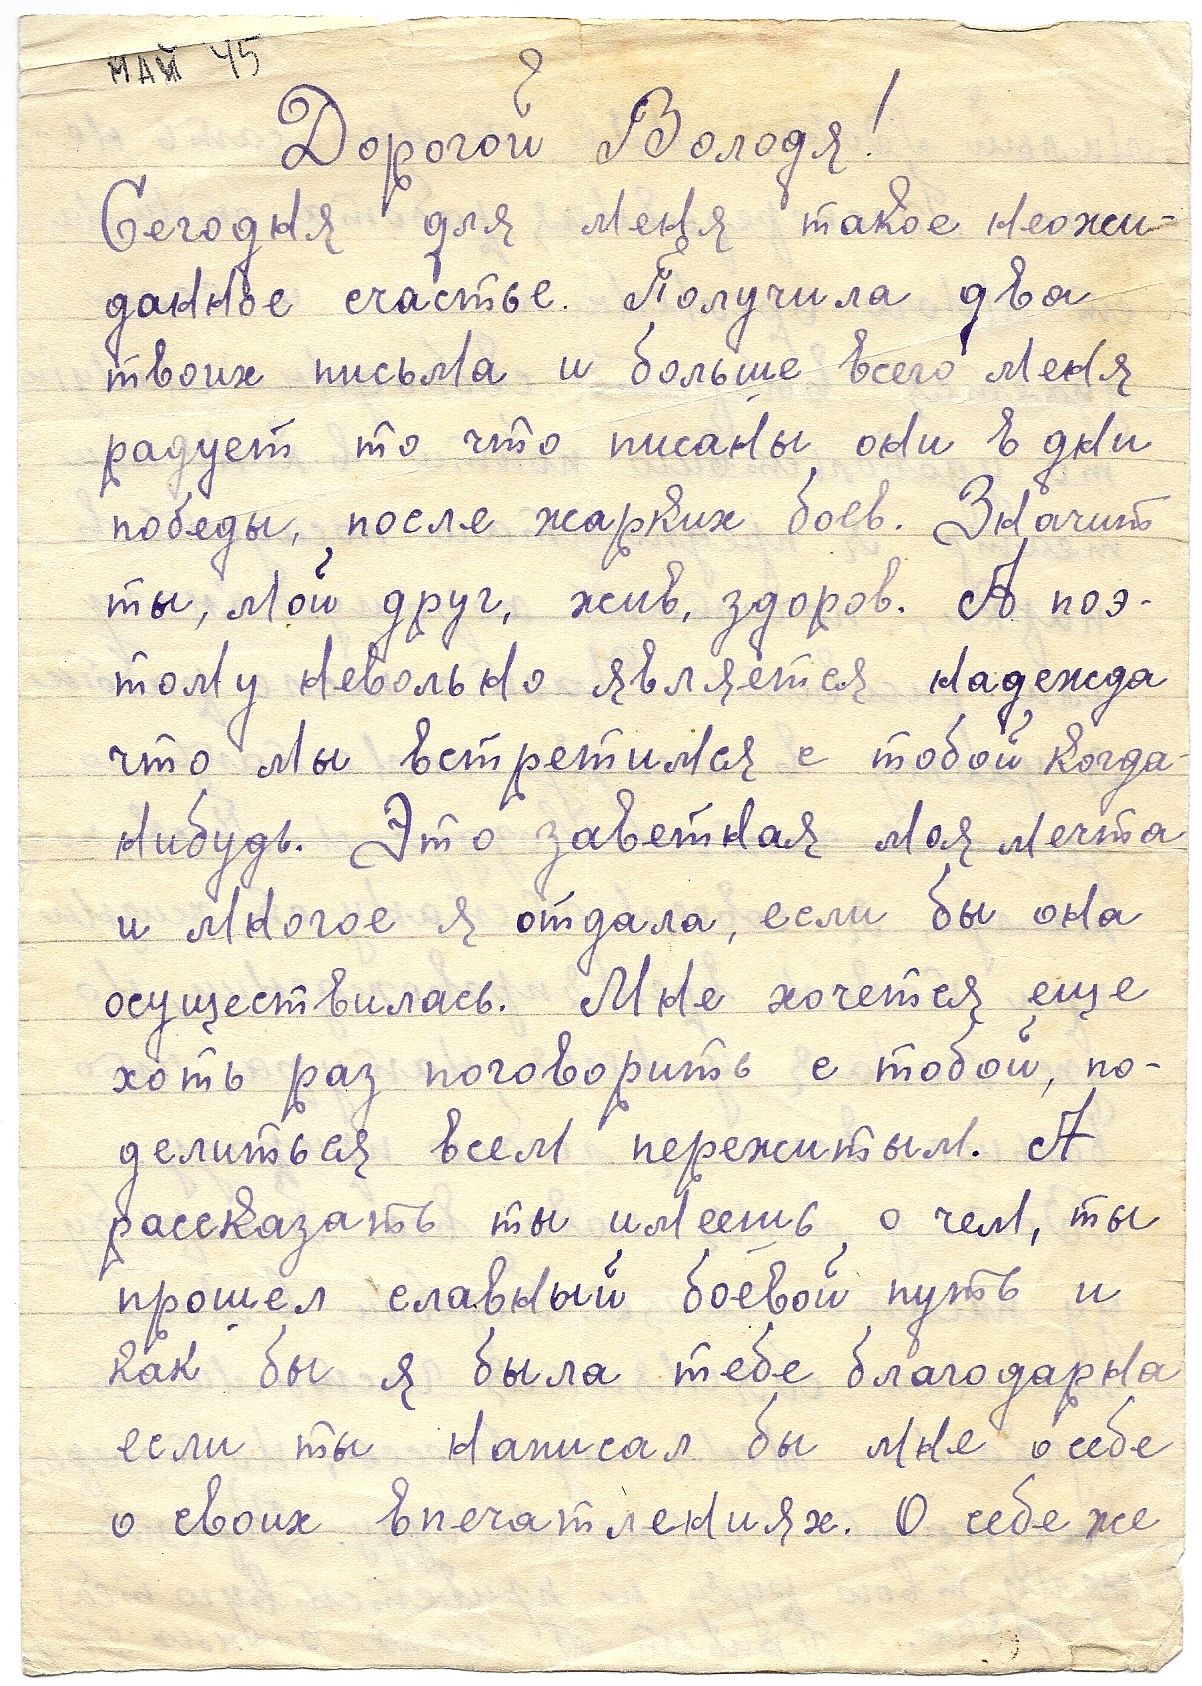 МАЙ 45
Дорогой Володя!
Сегодня для меня такое неожи-
данное счастье. Получила два
твоих письма и больше всего меня
радует то что писаны они в дни
победы, после жарких боев. Значит
ты, мой друг, жив, здоров. А поэ-
тому невольно является надежда
что мы встретимся с тобой когда-
нибудь. Это заветная моя мечта
и многое я отдала, если бы она
осуществилась. Мне хочется еще
хоть раз поговорить с тобой, по-
делиться всем пережитым. А
рассказать ты имеешь о чем, ты
прошел славный боевой путь и
как бы я была тебе благодарна
если ты написал бы мне о себе
о своих впечатлениях. О себе же